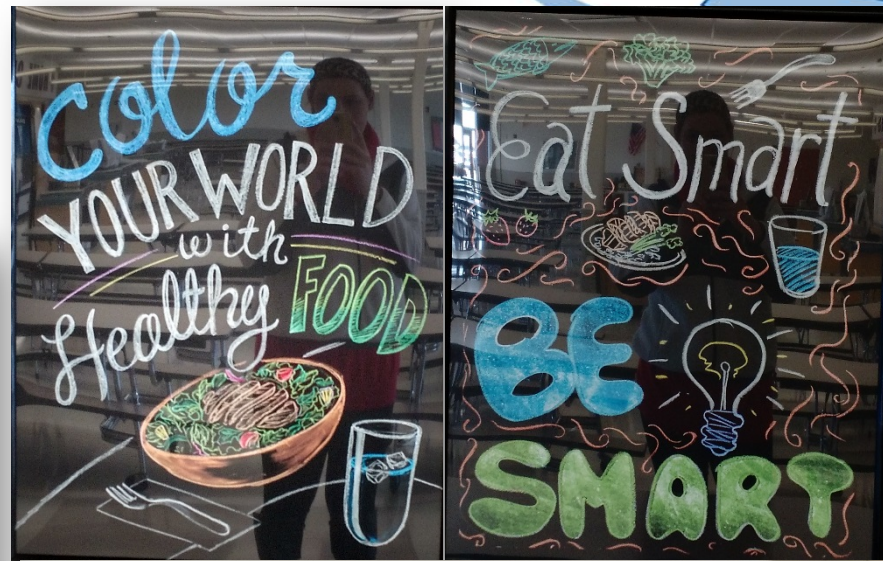 Color
YOUR WORLD
with
Healthy FOOD
Eat Smart
BE
SMART